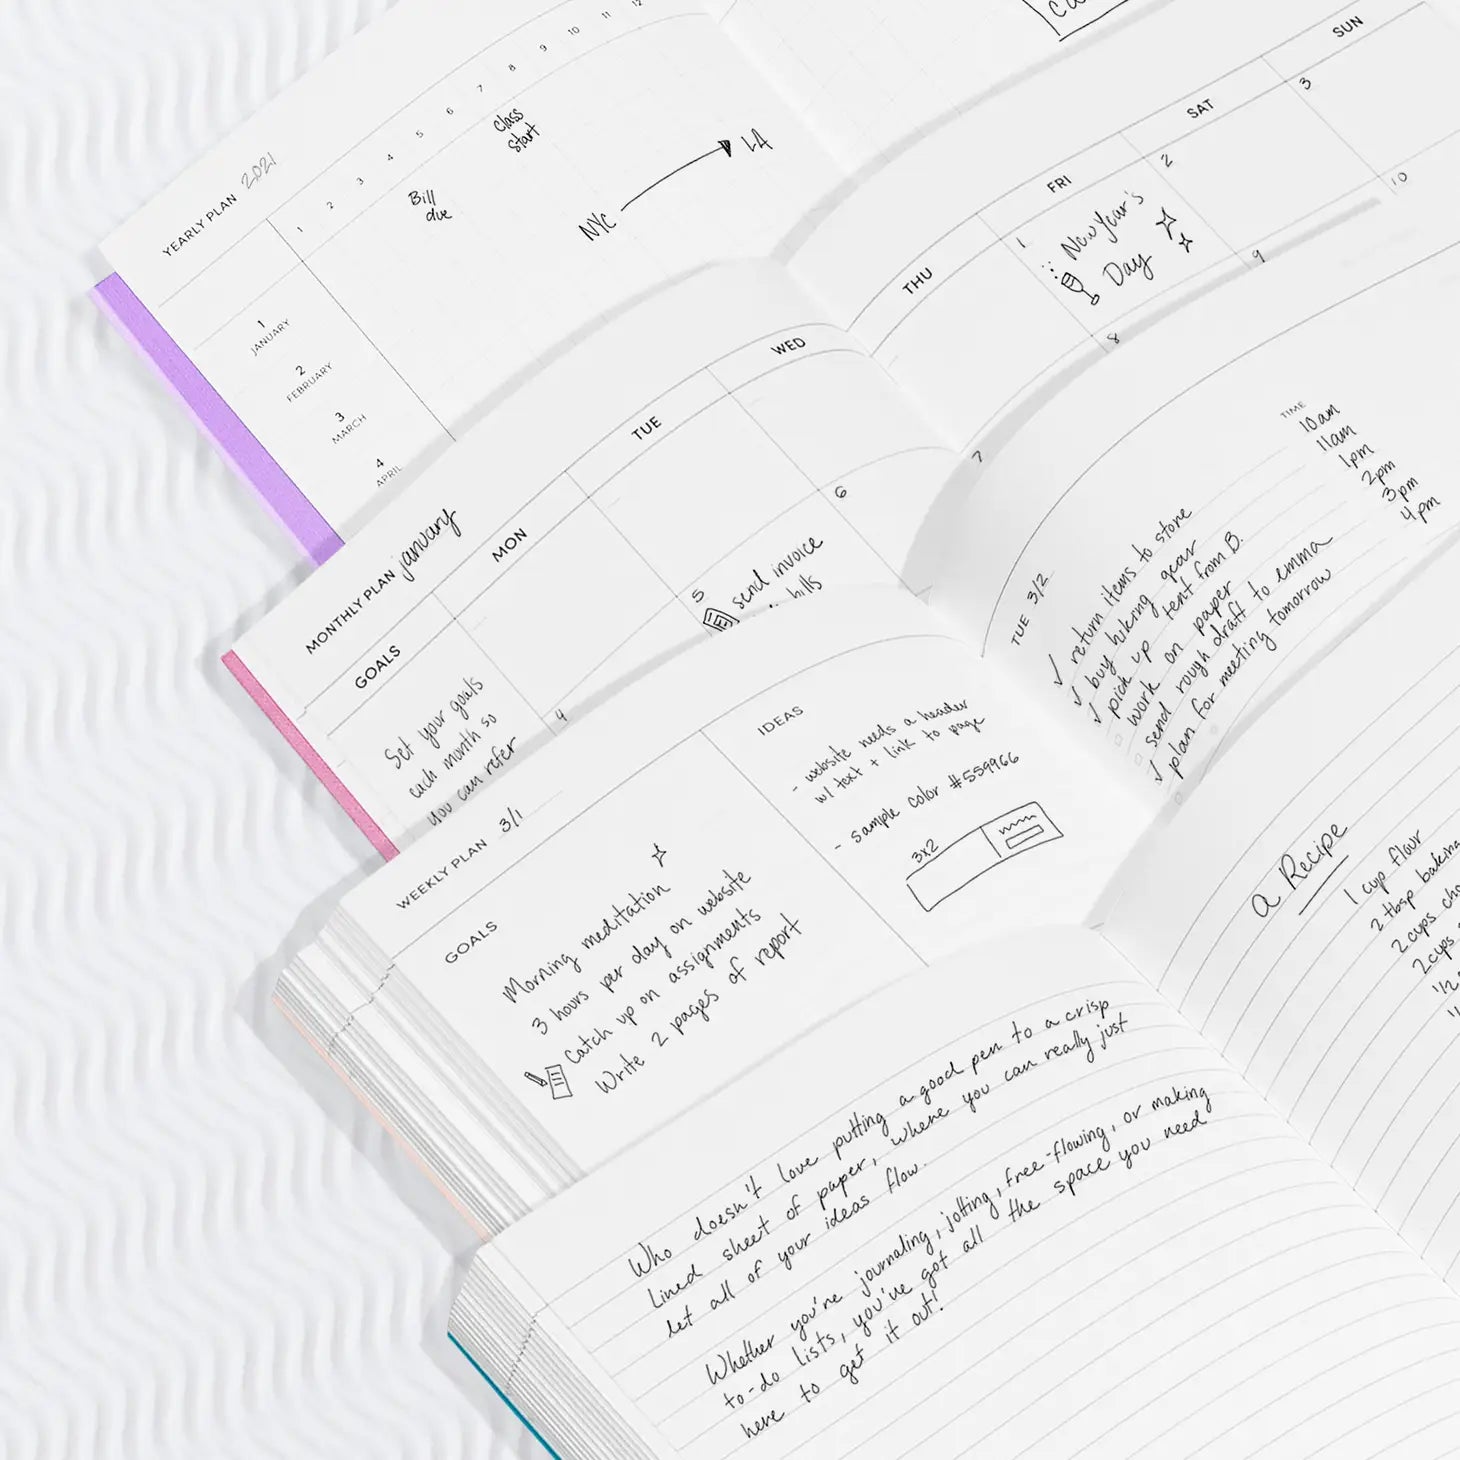 YEARLY PLAN 2021
1 2 3 4 5 6 7 8 9 10 11 12
1
JANUARY
2
FEBRUARY
3
MARCH
4
APRIL
Bill
due
Class
Start
NYC
LA
MONTHLY PLAN january
GOALS
MON
TUE
WED
THU
FRI
SAT
SUN
Set your goals
each month so
you can refer
4
5
send invoice
bills
6
7
1
New Year's
Day
8
2
9
3
10
WEEKLY PLAN 3/1
GOALS
Morning meditation
3 hours per day on website
Catch up on assignments
Write 2 pages of report
IDEAS
- website needs a header
w/ text + link to page
- sample color #559966
3x2
TUE 3/2
TIME
return items to store 10am
buy hiking gear 11am
pick up tent from B. 1pm
work on paper 2pm
send rough draft to emma 3pm
plan for meeting tomorrow 4pm
Who doesn't love putting a good pen to a crisp
lined sheet of paper, where you can really just
let all of your ideas flow.
Whether you're journaling, jotting, free-flowing, or making
to-do lists, you've got all the space you need
here to get it out!
a Recipe
1 cup flour
2 tbsp baking
2 cups
2 cups
1/2